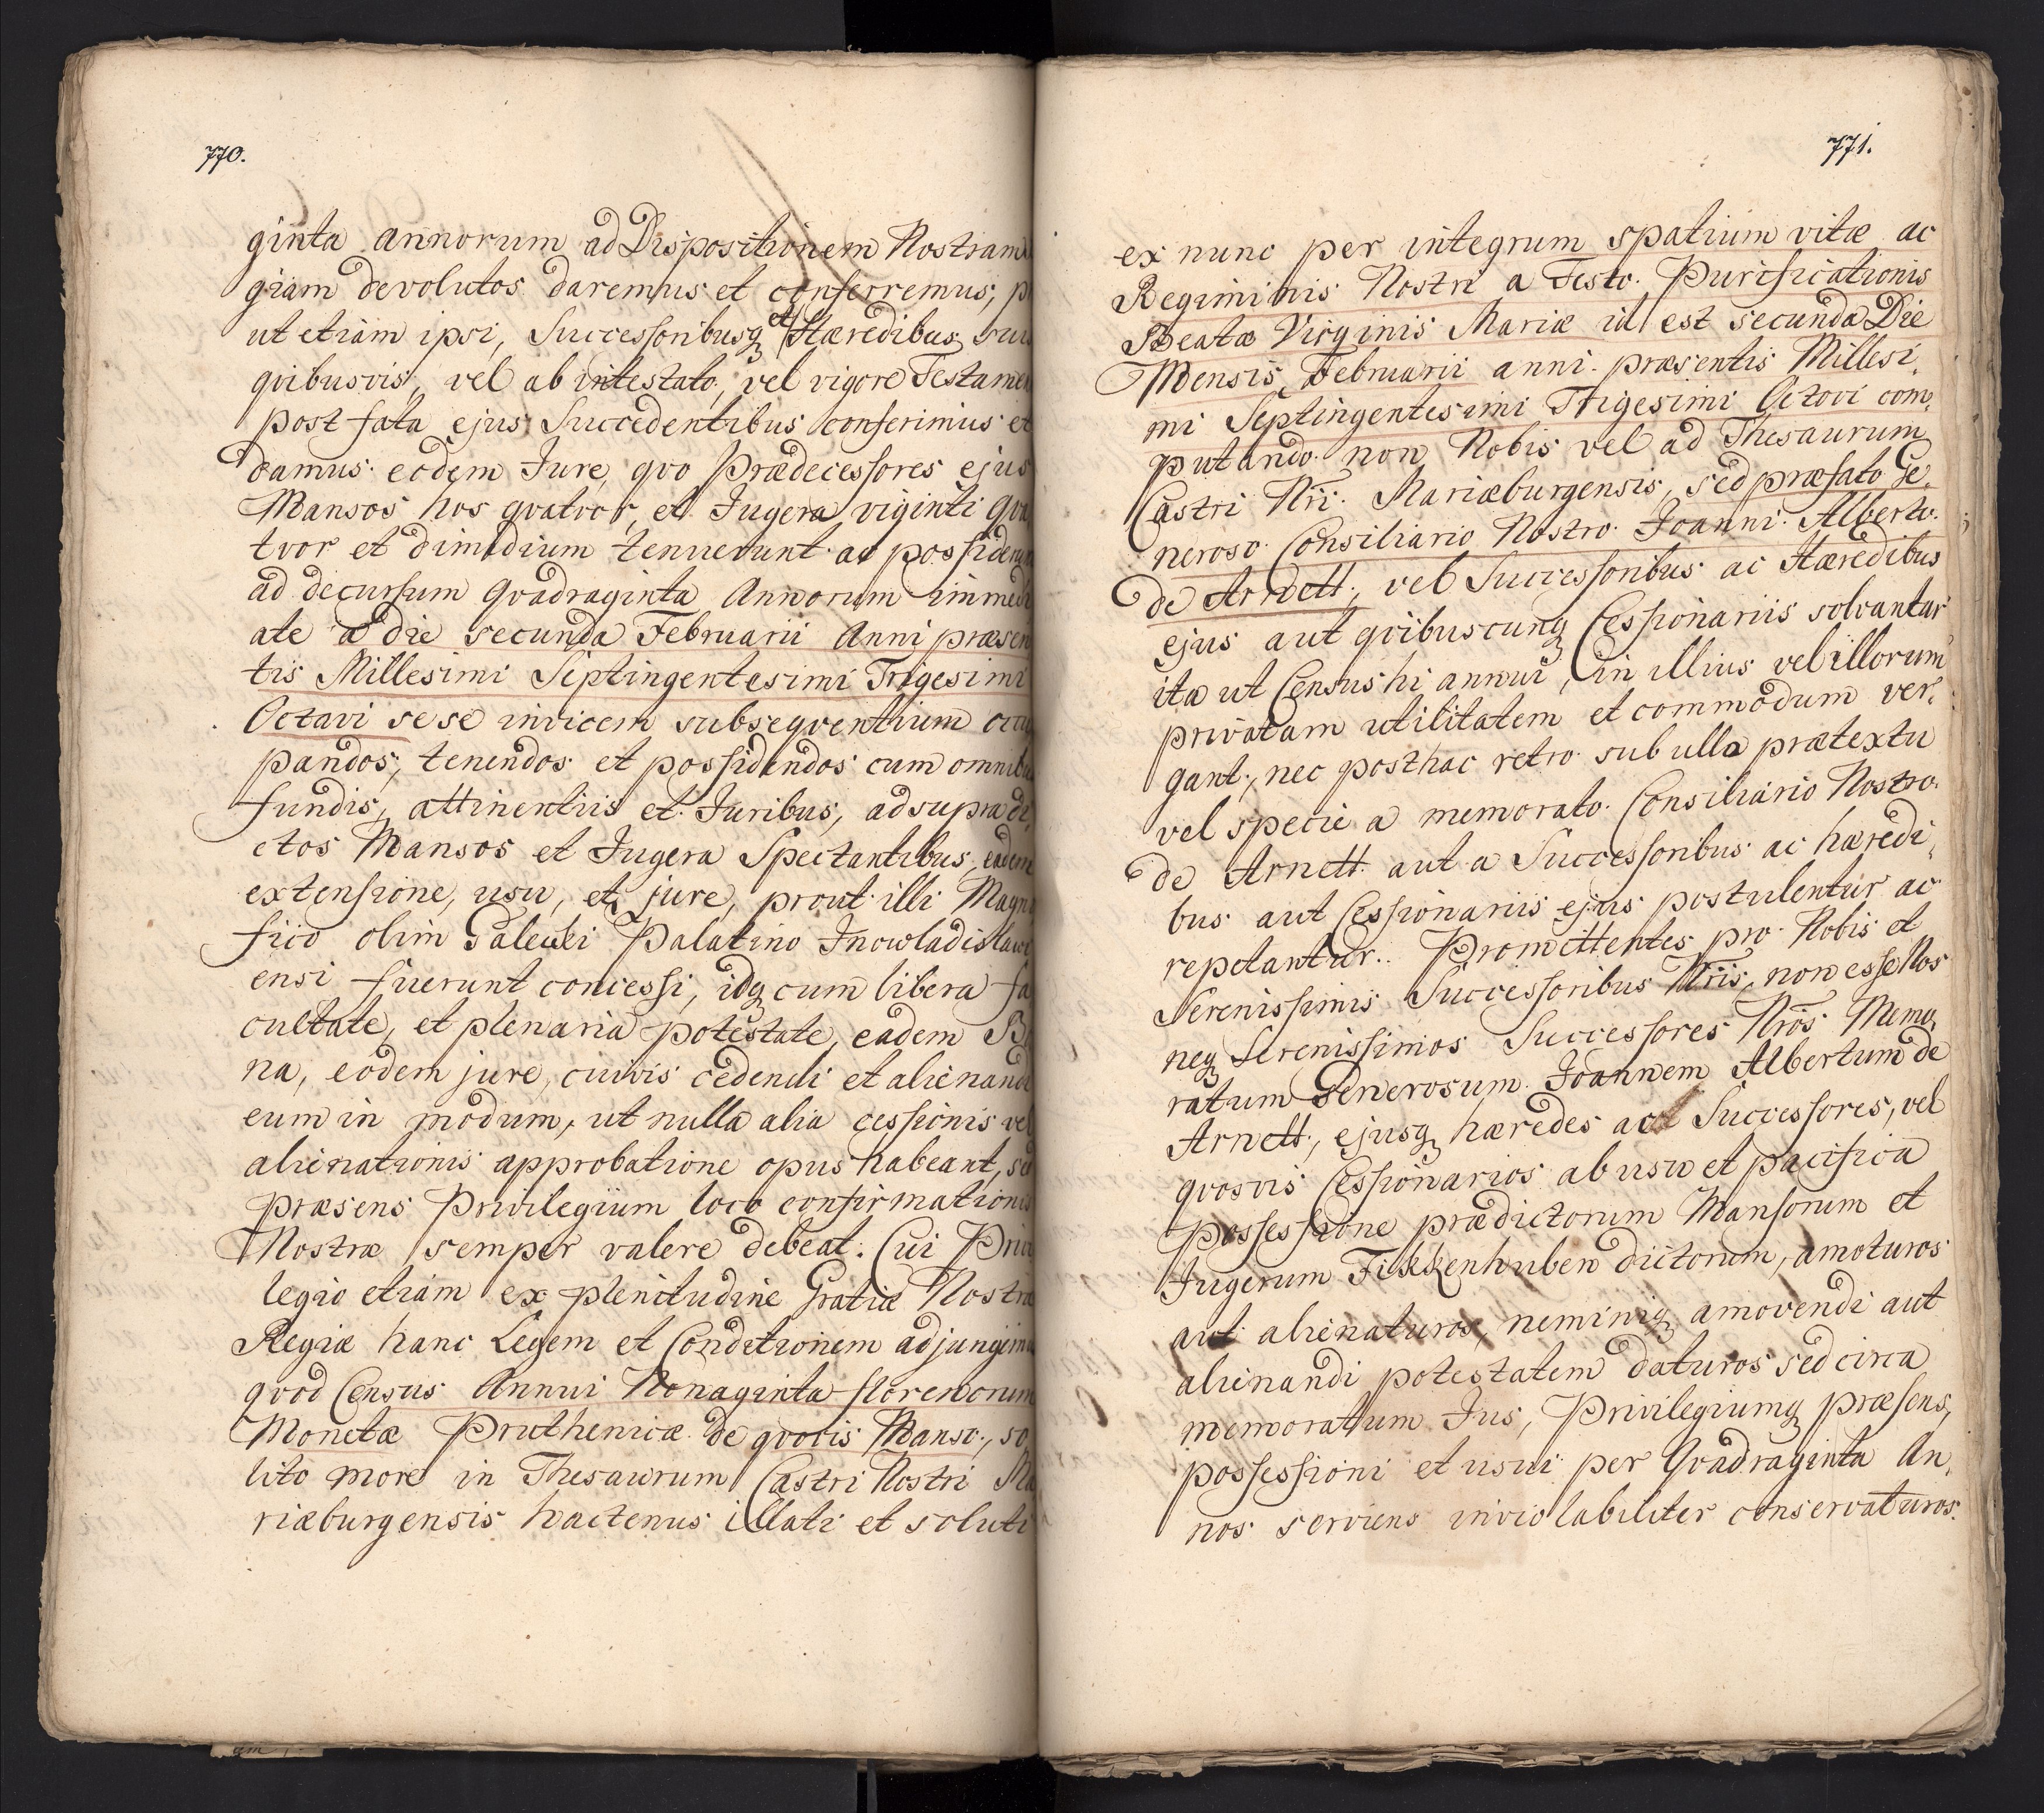 770.
ginta annorum ad Dispositionem Nostram
giam devolutos daremus et conferremus, p
ut etiam ipsi, Successoribusq et Hæredibus sui
qvibusvis, vel ab intestato, vel vigore Testamen
post fata ejus Succedentibus conferimus et
damus eodem Jure, qvo Prædecessores ejus
Mansos hos qvatvor, et Jugera viginti qva
tvor et dimidium tenuerunt ac possiderun
ad decursum Qvadraginta Annorum immedi
ate a die secunda Februarii Anni præsen
tis Millesimi Septingentesimi Trigesimi
Octavi sese invicem subseqventium occu
pandos, tenendos et possidendos cum omnibu
fundis, attinentiis et Juribus, ad supra di,
ctos Mansos et Jugera Spectantibus, eadem
extensione, usu, et jure, prout illi Magni
fico olim Galecki Palatino Inowladislavi
ensi fuerunt concessi, idq cum libera fa
cultate, et plenaria potestate, eadem Bo
na, eodem jure, cuivis cedendi et alienandi
eum in modum, ut nulla alia cessionis vel
alienationis approbatione opus habeant, sed
præsens Privilegium loco confirmationis
Nostræ semper valere debeat. Cui Privi
legio etiam ex plenitudine Gratiæ Nostræ
Regiæ hanc Legem et Conditionem adjungimu
qvod Census Annui Nonaginta florenorum
Monetæ Pruthenicæ de qvovis Manso, so
lito more in Thesaurum Castri Nostri Ma
riæburgensis hactenus illati et soluti
771.
ex nunc per integrum spatium vitæ ac
Regiminis Nostri a Festo Purificationis
Beatæ Virginis Mariæ id est secunda Die
Mensis Februarii anni præsentis Millesi,
mi Septingentesimi Trigesimi Octovi com,
putando non Nobis vel ad Thesaurum
Castri Nri. Mariæburgensis, sed præfato Ge,
neroso Consiliario Nostro Joanni Alberto
de Arnett, vel Successoribus ac Hæredibus
ejus aut qvibuscunq Cessionariis solvantur
ita ut Census hi annui, in illius vel illorum
privatam utilitatem et commodum ver,
gant, nec posthac retro sub ulla prætextu
vel specie a memorato Consiliario Nostro
de Arnett aut a Successoribus ac hæredi,
bus aut Cessionariis ejus postulentur ac
repetantur. Promittentes pro Nobis et
Serenissimis Successoribus Nris, non esse Nos
neq Serenissimos Successores Nros Memo,
ratum Generosum Joannem Albertum de
Arnett, ejusq hæredes ac Successores, vel
qvosvis Cessionarios ab usu et pacifica
Possessione prædictorum Mansorum et
Jugerum Fikkenhuben dictorum, amoturos
aut alienaturos, neminiq amovendi aut
alienandi potestatem daturos sed circa
memoratum Jus, Privilegiumq præsens,
possessioni et usui per Qvadraginta An,
nos serviens inviolabiliter conservaturos.